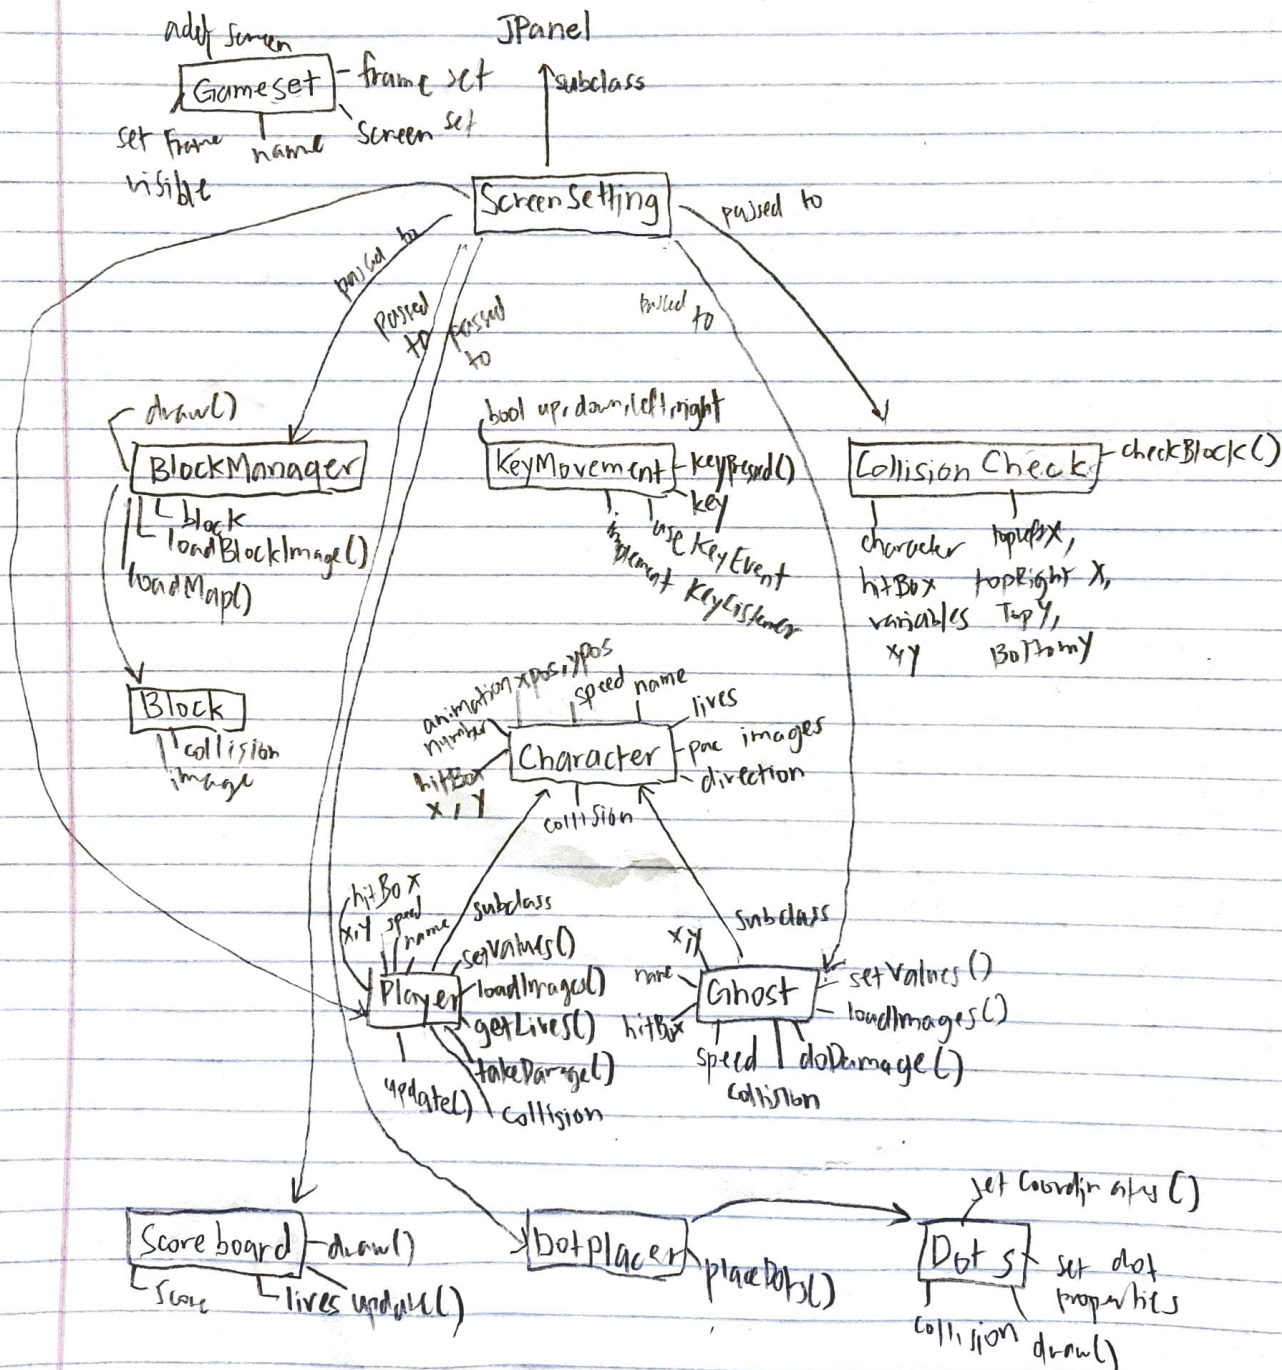 JPanel
add screen
Gameset
frame set
subclass
set frame
visible
name
screen set
ScreenSetting
passed to
passed to
passed
to
passed
to
passed
to
draw()
BlockManager
block
loadBlockImage()
loadMap()
bool up, down, left, right
KeyMovement
key
use KeyEvent
implement KeyListener
Collision Check
checkBlock()
character
hitBox
variables
x, y
topRight X,
TopY,
BottomY
Block
collision
image
animation
number
xpos, ypos
speed
name
lives
Character
pac images
direction
hitBox
x, y
collision
hitBox
x, y
speed
name
subclass
Player
setValues()
loadImages()
getLives()
takeDamage()
update()
collision
subclass
x, y
name
Ghost
setValues()
loadImages()
hitBox
speed
doDamage()
collision
Scoreboard
draw()
score
lives update()
DotPlacer
placeDots()
set Coordinates()
Dots
set dot
properties
collision
draw()